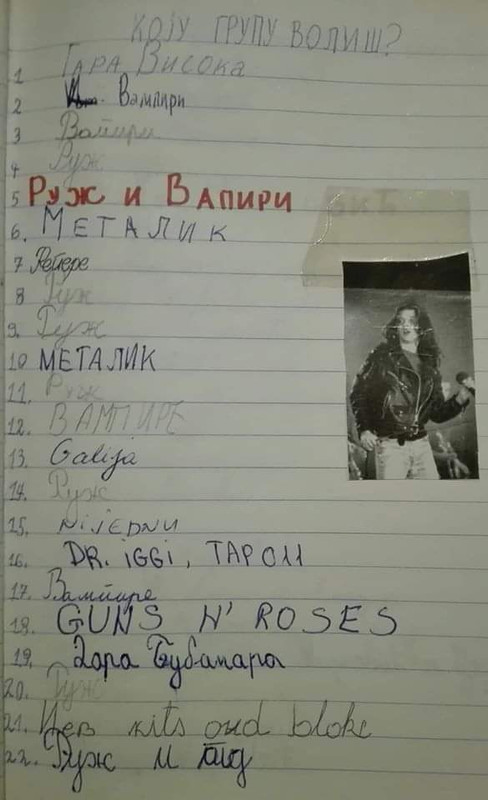 КОЈУ ГРУПУ ВОЛИШ?
1 Гара Висока
2 Вампири
3 Вампири
4 Руж
5 Руж и Вапири
6. Металик
7 Репере
8 Руж
9. Руж
10 МЕТАЛИК
11. Руж
12. ВАМПИРЕ
13. Galija
14. Руж
15. Nijednu
16. DR. iGGi,
17. Вампире
18. GUNS N' ROSES
19. Бубамара
20. Руж
21. kits and bloke
22. Руж и